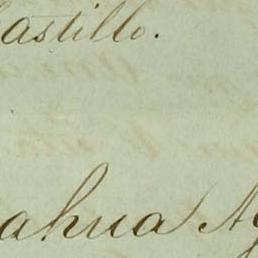 astillo.
ahua Ag